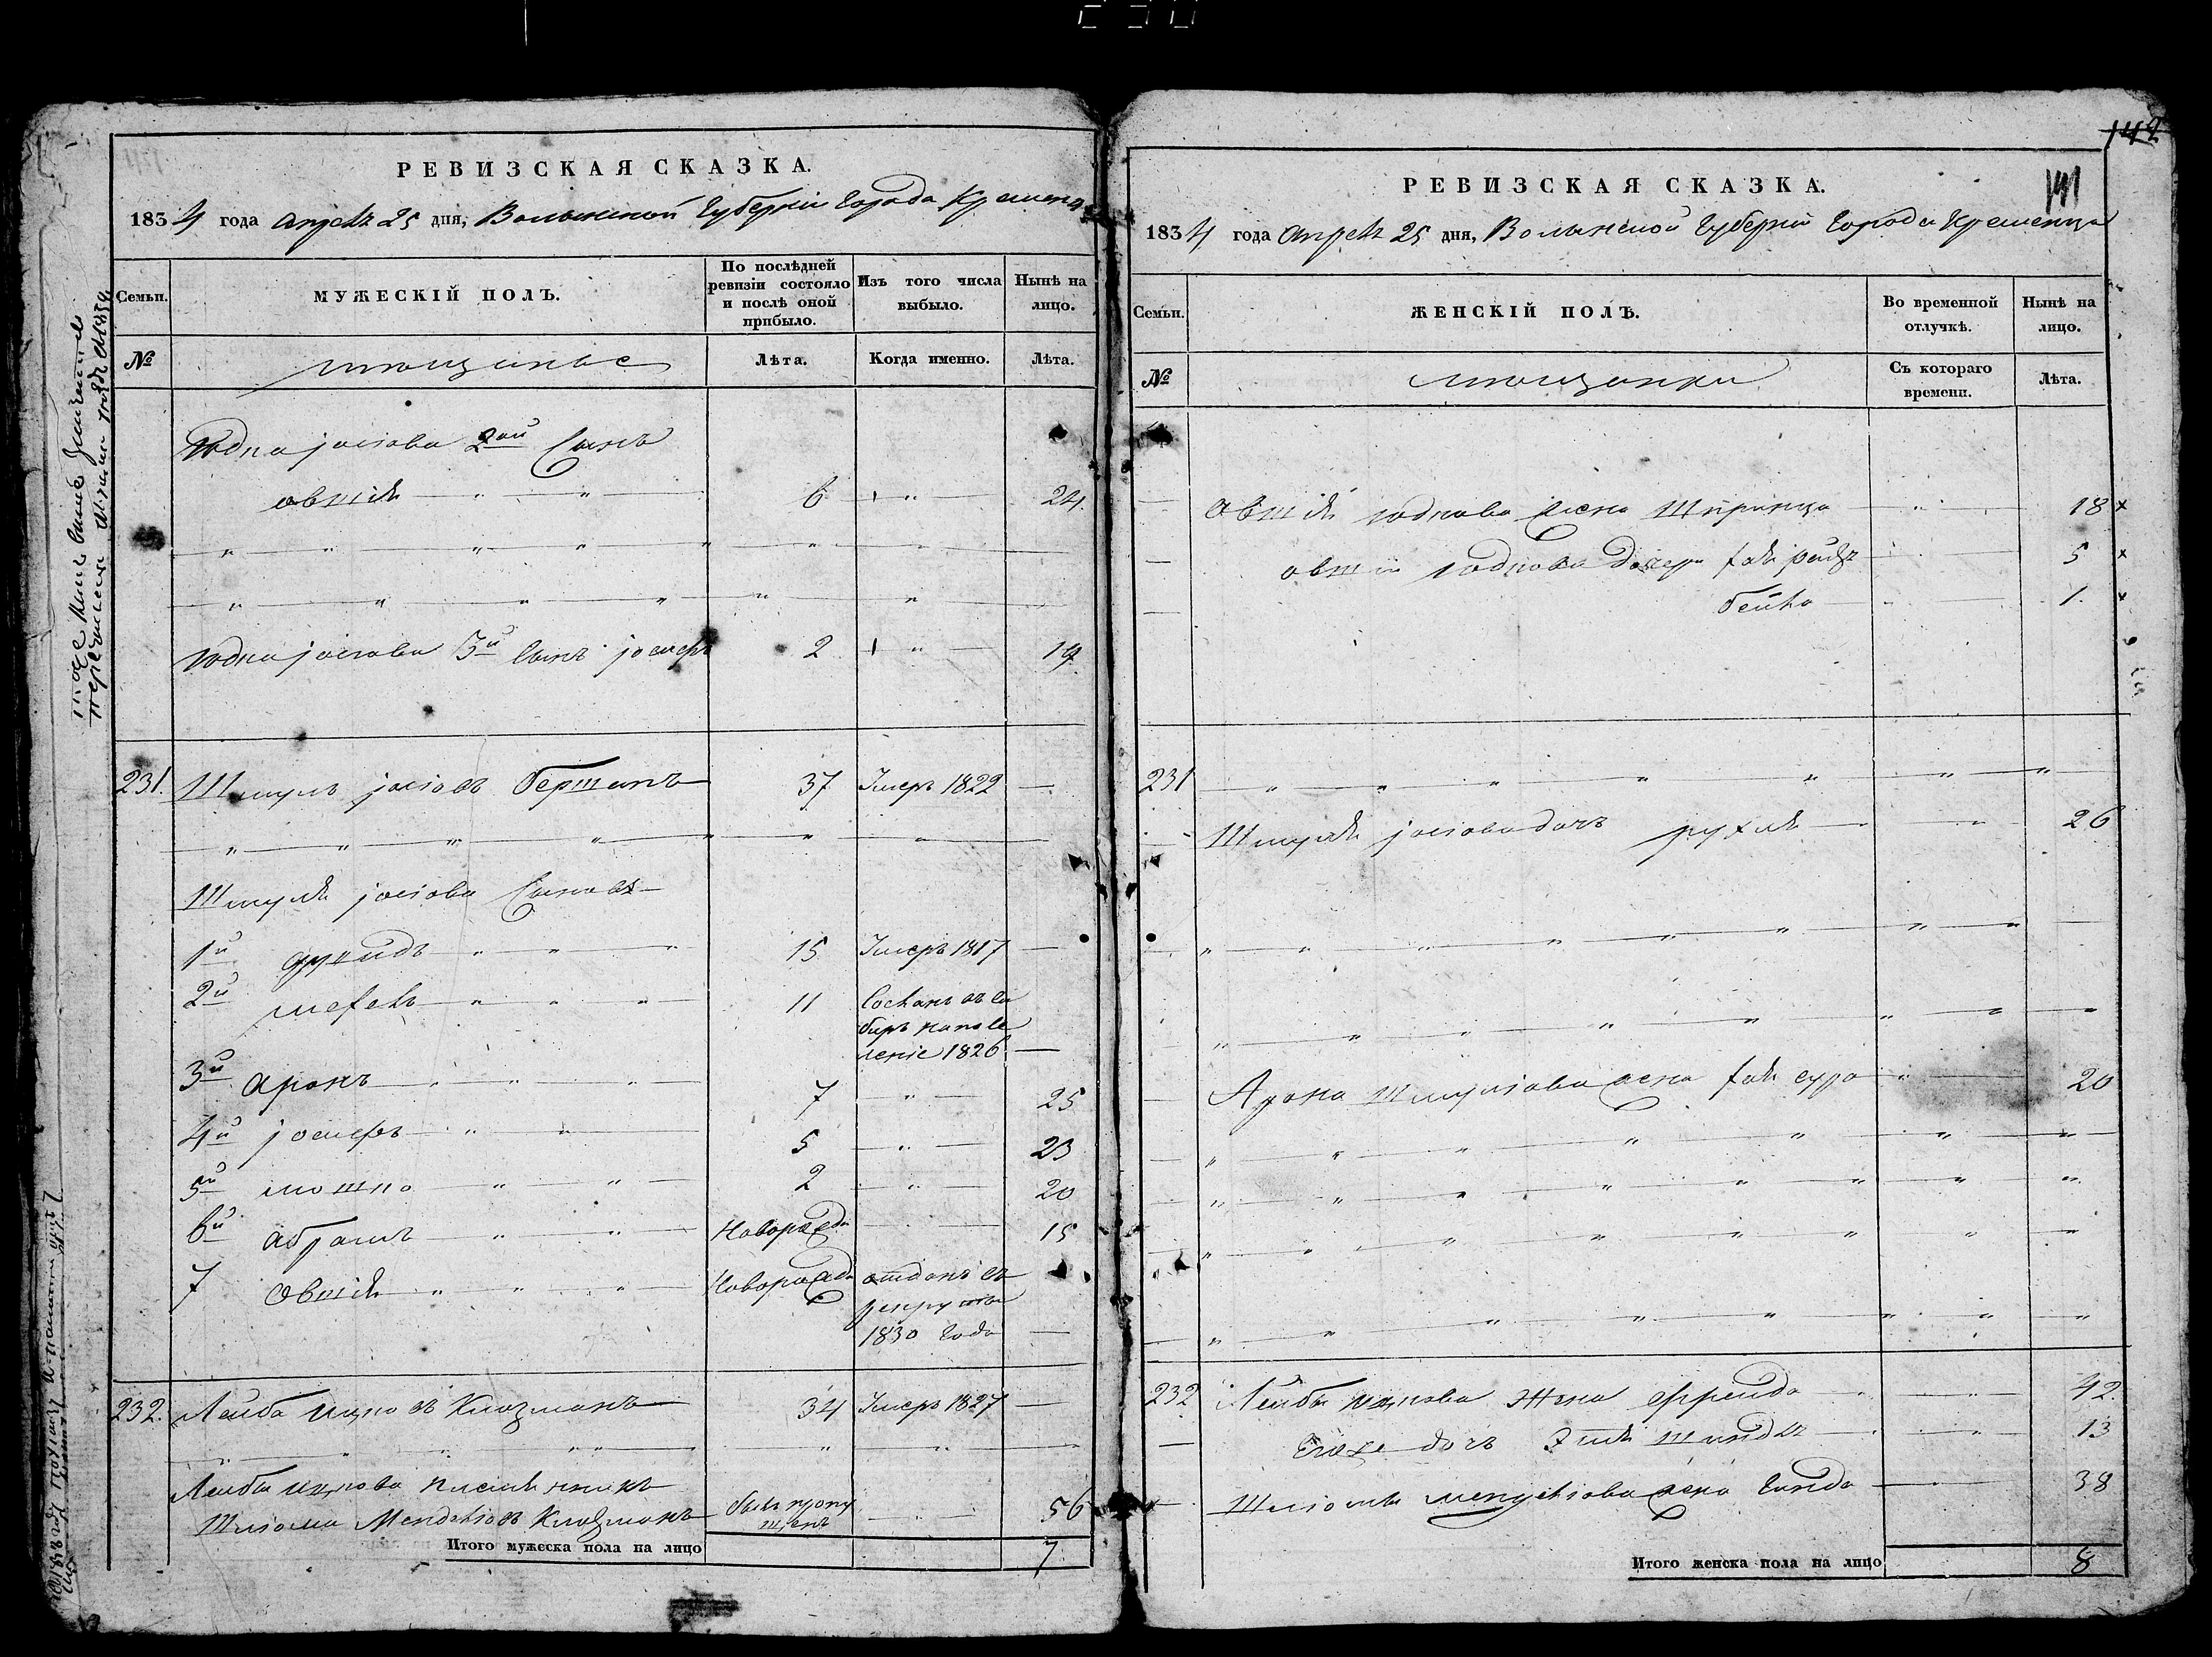 142
141
РЕВИЗСКАЯ СКАЗКА.
1834 года Апреля 25 дня, Волынской Губернии Города Кременца
Семьи. МУЖЕСКІЙ ПОЛЪ. По послѣдней ревизіи состояло и послѣ оной прибыло. Изъ того числа выбыло. Нынѣ на лицо.
№ мѣщанѣ Лѣта. Когда именно. Лѣта.
Юдка Іосіова 2ой Сынъ
Овшій 6 24
Юдка Іосіова 3й Сынъ Іосифъ 2 19
231. Шмуль Іосіовъ Берштынъ 37 Умеръ 1822
Шмуля Іосіова Сыновя
1й Дувидъ 15 Умеръ 1817
2й 11 Сосланъ въ Си
биръ на посе
леніе 1826
3й Аронъ 7 25
4й Іосифъ 5 23
5й Мошко 2 20
6й Абрамъ Новорожде 15
7 Овшій Новорожде отданъ въ
рекруты
1830 Года
232. Лейба Ицковъ Клозманъ 34 Умеръ 1827
Лейбы Ицкова племѣнникъ
Шліома Менделіовъ Клозманъ былъ пропу
щенъ 56
Итого мужеска пола на лицо 7
РЕВИЗСКАЯ СКАЗКА.
1834 года Апреля 25 дня, Волынской Губернии Города Кременца
Семьи. ЖЕНСКІЙ ПОЛЪ. Во временной отлучкѣ. Нынѣ на лицо.
№ мѣщанки Съ котораго времени. Лѣта.
Овшія Юдкова жена Шпринца 18 x
Овшія Юдкова дочери 5 x
Бейла 1. x
231
Шмуля Іосіова дочъ Рухля 26
Арона Шмуліова жена Хая Сура 20
232 Лейбы Ицкова Жена Фрейда 42
Егоже дочъ 13
Шліомы Менделіова жена Гинда 38
Итого женска пола на лицо 8